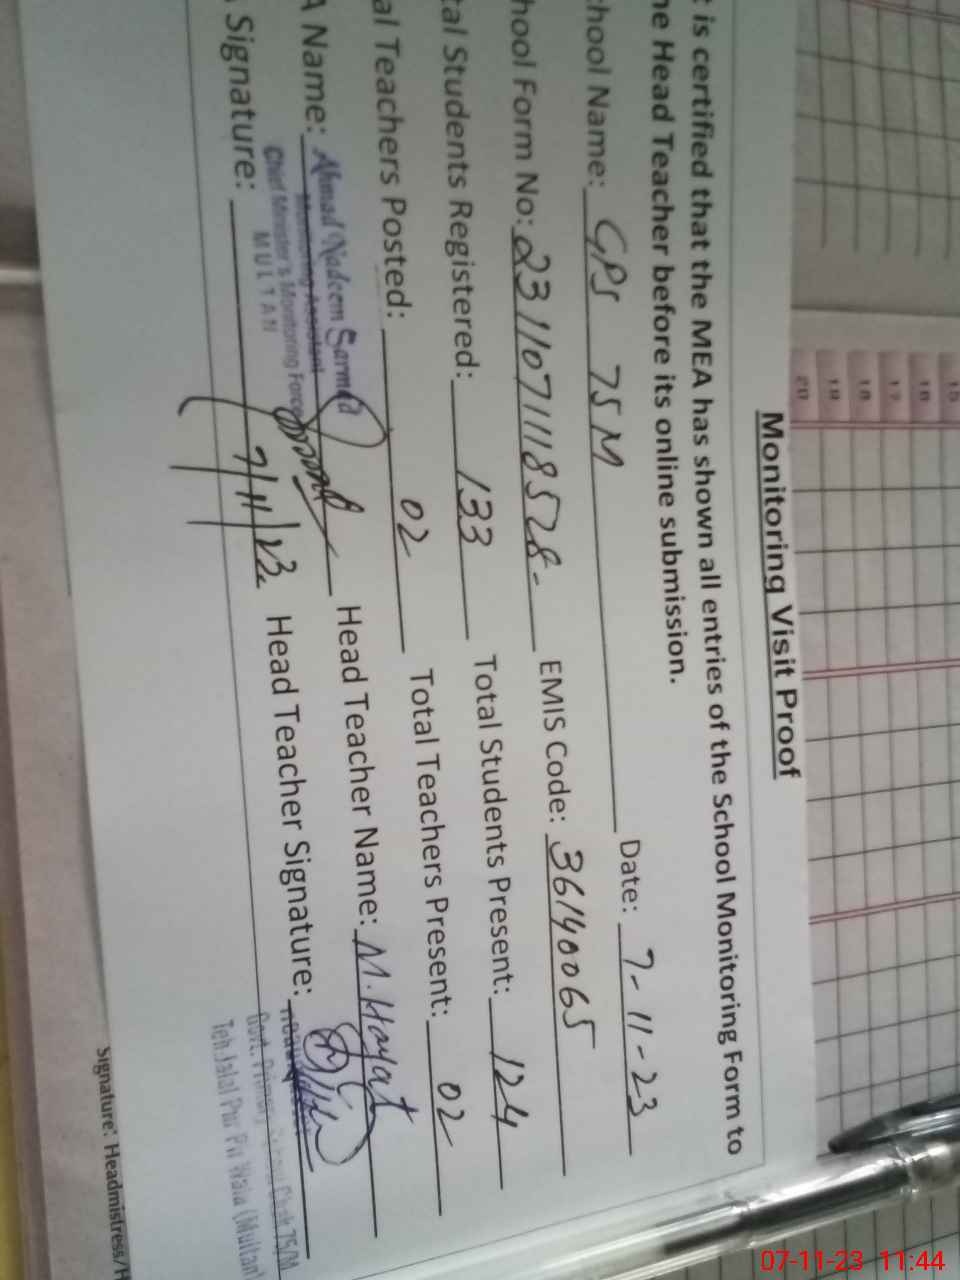 Monitoring Visit Proof
t is certified that the MEA has shown all entries of the School Monitoring Form to
he Head Teacher before its online submission.
chool Name: GPS 75M Date: 7-11-23
hool Form No: 23110711118528- EMIS Code: 36140065
tal Students Registered: 133 Total Students Present: 124
al Teachers Posted: 02 Total Teachers Present: 02
A Name: Ahmad Nadeem Sarmad Head Teacher Name: M. Hayat
Monitoring Assistant
Chief Minister's Monitoring Force
MULTAN
Signature: 7/11/23. Head Teacher Signature:
Govt. Primary School Chak 75/M
Teh Jalal Pur Pir Wala (Multan)
Signature: Headmistress/H
15
16
17
18
19
20
07-11-23 11:44